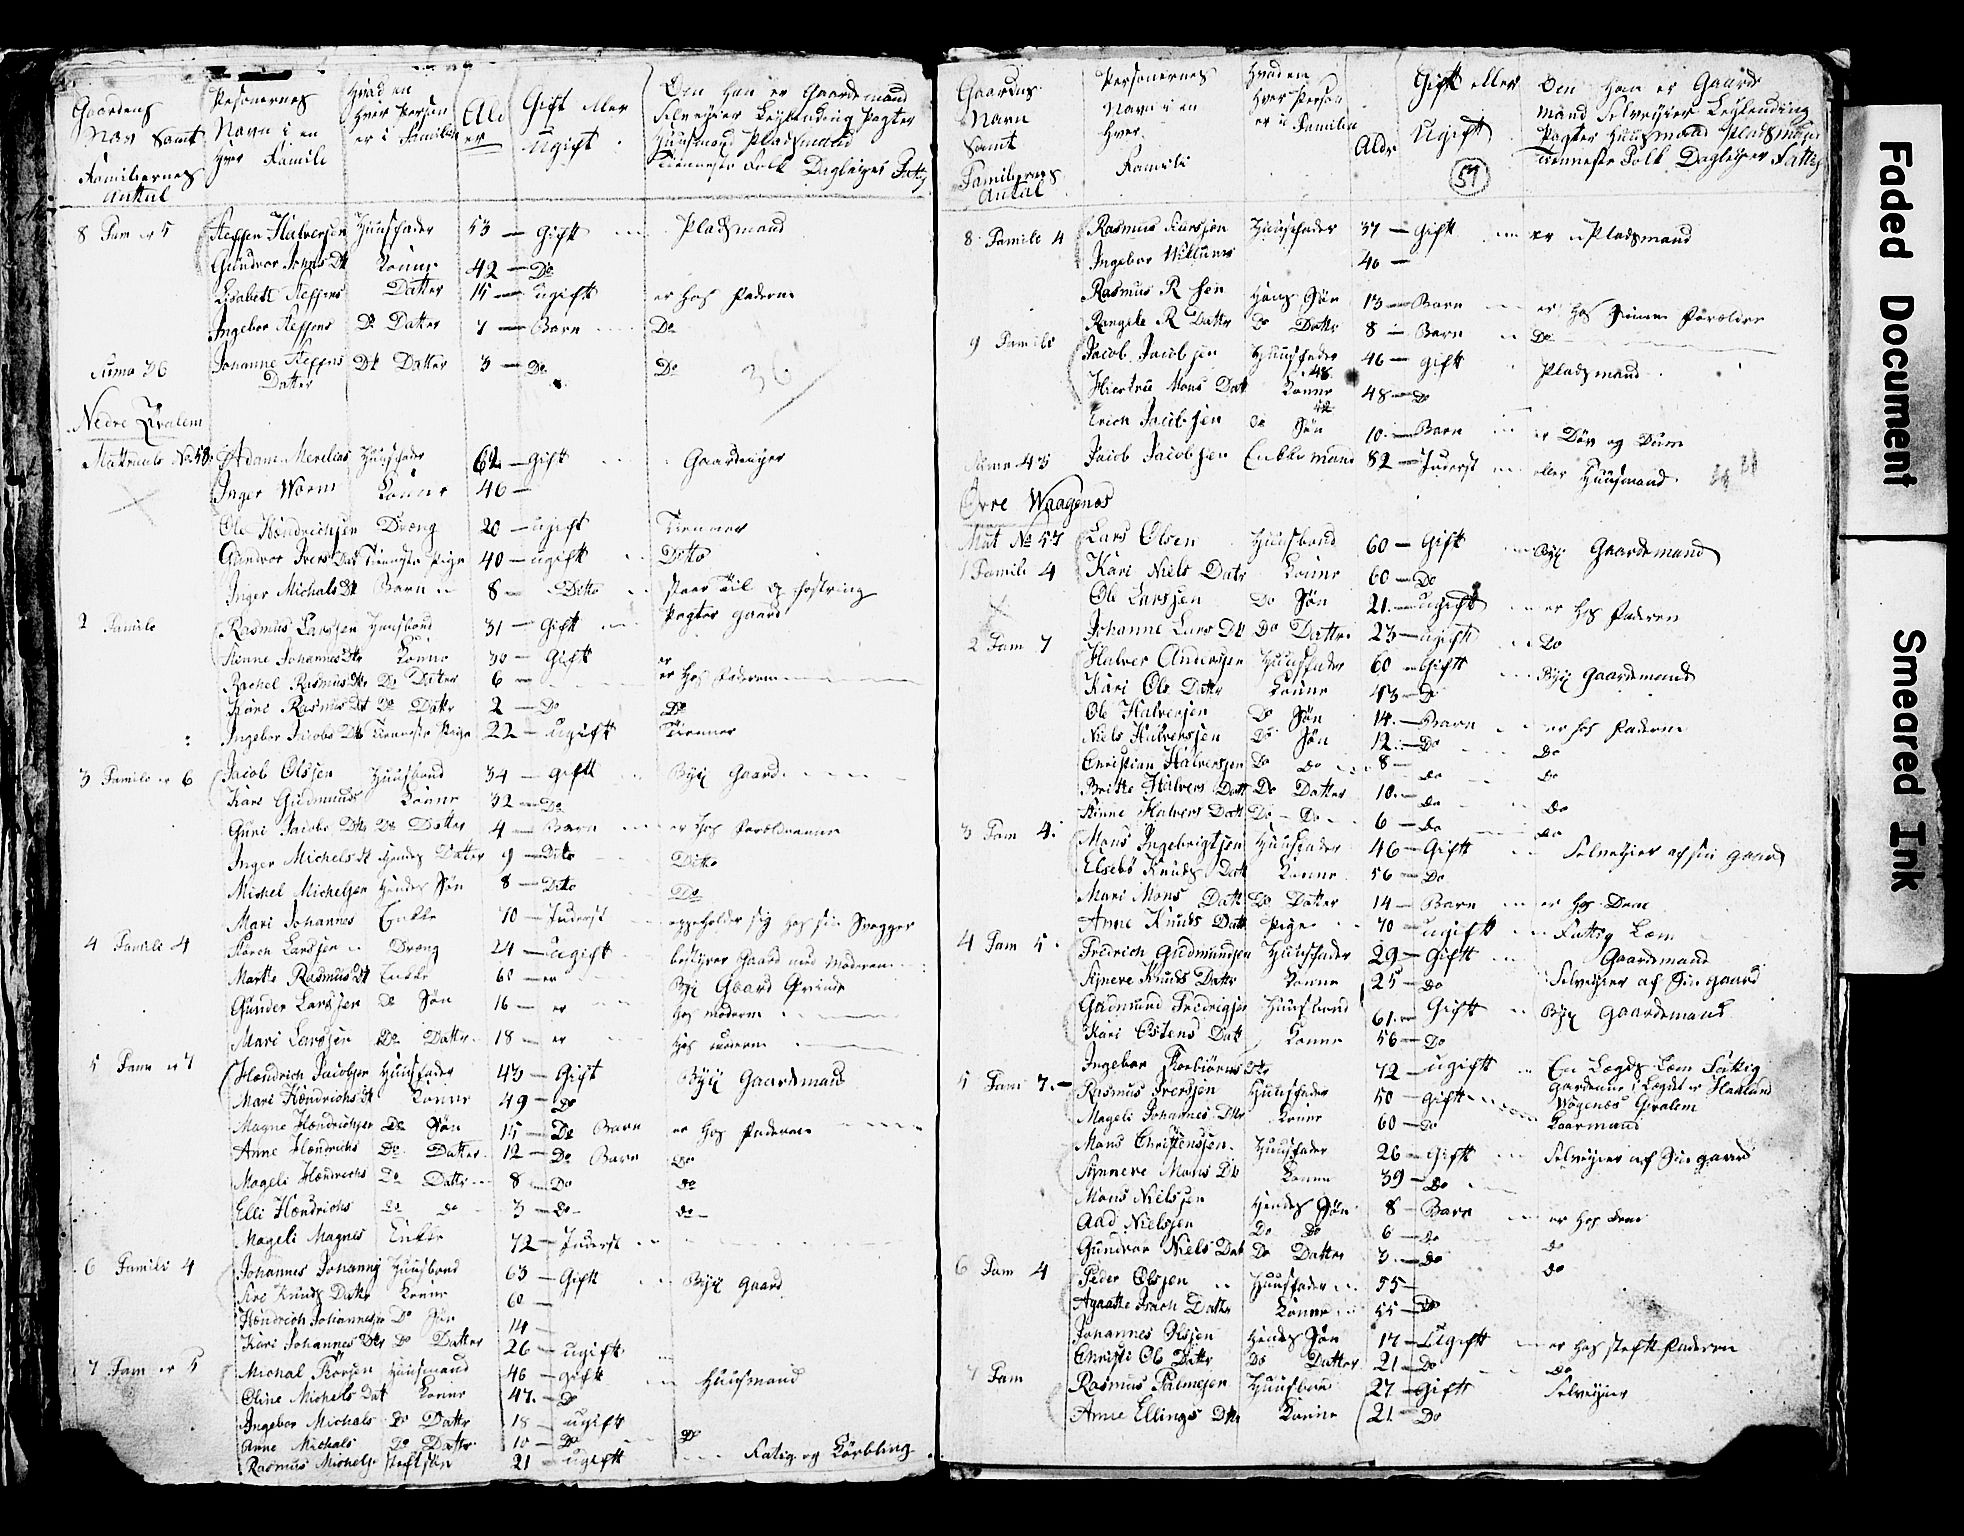 Gaardens Navn Samt Familiernes Anttal
Personernes Navn i en hver Famile
Hvad en hver Person er i Familien
Alder
Gift eller Ugift
Den Han er Gaardemand Selveyier Leylending Pagter Huusmand Pladsmand Tienneste Folk Dagleyer Fattig
8 Fam er 5 Steffen Halversen Huusfader 53 — Gift Pladsmand
Gundvor Johns Dt Konne 42 — Do
Lisabett Steffens Datter 15 — ugift er hos Faderen
Ingebor Steffens Do Datter 7 — Barn Do
Suma 36 Johanne Steffens Datter Dt Datter 3 — Do Do
36
Nedre Qvalem
Matricule No 58 Adam Merelias Huusfader 62 — Gift Gaardeeyer
Inger Worm Konne 46 —
Ole Hendrichsen Dreng 20 — ugift Tienner
Gundvor Ivers Dat Tienneste Pige 40 — ugift Ditto
Inger Michals Dt Barn 8 — Ditto staar til opfostring
2 Famile Rasmus Larssen Huusbond 31 — Gift Pagter gaard
Stinne Johannes Dtr Konne 30 — Gift er
Rachel Rasmus Dtr Do Datter 6 — er hos Faderen
Kari Rasmus Dt Do Datter 2 — Do Do
Ingebor Jacobs Dtr Tienneste Pige 22 — ugift Tienner
3 Famile er 6 Jacob Olssen Huusbond 34 — gift Byg Gaard
Kari Gudmunds Konne 32 — Do
Guri Jacobs Dtr Do Datter 4 — Barn er hos Foreldrenne
Inger Michels Dt Hendes Datter 9 — Dito Ditto
Michel Michelsen Hendes Søn 8 — Dito Do
Mari Johannes Enke 70 — Inderst oppeholder sig hos sin Svoger
4 Famile 4 Larssen Dreng 24 — ugift bestyrer Gaard med Moderen
Martte Rasmus Dt Enke 60 — er Byg Gaard
Gunder Larssen Do Søn 16 — er hos moderen
Mari Larssen Do Datter 18 — er hos moderen
5 Fam er 7 Hendrich Jacobsen Huusfader 43 — Gift Byg Gaardemand
Mari Hendrichs Dt Konne 49 — Do
Magne Hendrichsen Do Søn 15 — Do Barn er hos Faderen
Anne Hendrichs Do Datter 12 — Do Barn Do
Mageli Hendrichs Do Datter 8 — Do Do
Elli Hendrichs do do 3 — Do Do
Mageli Magnes Enke 72 — Inderst
6 Famile 4 Johannes Johannes Huusbond 63 — Gift Byg Gaard
Knuds Datter Konne 60 —
Hendrich Johannessen Do Søn 14 —
Kari Johannes Dtr Do Datter 26 — ugift
7 Fam er 5 Michal Huusmand 46 — gift Huusmand
Oline Michels Dat Konne 47 — Do
Ingebor Michals Do Datter 18 — ugift
Anne Michals Do Datter 10 — Do Do
Rasmus Michels stefsøn 21 — ugift Fatig og Kørbling
Gaardens Navn Samt Familiernes Anttal
Personernes Navn i en hver Famile
Hvad en hver Person er i Familien
Aldr
Gift eller Ugift
57
Den Han er Gaardemand Selveyier Leylending Pagter Huusmand Pladsmand Tienneste Folk Dagleyer Fattig
8 Famile 4 Rasmus Larssen Huusfader 37 — Gift er Pladsmand
Ingebor Willums 40 —
Rasmus R Sen Hans Søn 13 — Barn er hos sinne Forældre
Rangele R Datter Do Datter 8 — Barn Do
9 Famile Jacob Jacobsen Huusfader 46 — gift Pladsmand
Hiertru Mons Datt Konne 48 — Do
Erich Jacobsen do Søn 10 — Barn er Døv og Dum
Suma 43 Jacob Jacobsen Enkemand 82 — Inderst eller Huusmand
Øvre Waagenes
Mat No 57 Lars Olsen Huusbond 60 — Gift Byg Gaardemand
1 Famile 4 Kari Niels Datr Konne 60 — Do
Ole Larssen Do Søn 21 — ugift er hos Faderen
Johanne Lars Dt Do Datter 23 — ugift Do
2 Fam 7 Halver Anderssen Huusfader 60 — Gift Byg Gaardemand
Kari Ole Dattr Konne 43 — D
Ole Halversen Do Søn 14 — Barn er hos Faderen
Niels Halverssen Do Søn 12 — Do Do
Christian Halverssen Do Do 8 — Do Do
Britte Halvers Datt Do Datter 10 — Do Do
Stinne Halvers Datt Do — Do 6 — Do Do
3 Fam 4 Mons Ingebrigtsen Huusfader 46 — Gift Selveyier af sin gaard
Elsebø Knuds Datt Konne 56 — Do
Mari Mons Datt Do Datter 14 — Barn er hos Dem
Anne Knuds Datt Pige 70 — ugift Fattig Lem
4 Fam 5 Fredrich Gudmundsen Huusfader 29 — Gift Gaardemand
Synere Knuds Dattr Konne 25 — Do Selveyier af Sin gaard
Gudmund Fredrigsen Huusbond 61 — Gift Byg Gaardemand
Kari Østens Datt Konne 56 — Do
Ingebor Torbiørns Dtr 72 — ugift En Lægds Lem Fattig
5 Fam 7 Rasmus Iverssen Huusfader 50 — gift gardenne i Lægdet er Wogenæs Qvalem
Mageli Johannes Dtr Konne 60 — Do Kaarmand
Mons Christenssen Huusfader 26 — Gift Selveyier af Sin gaard
Synneve Mons Dt Konne 39 — Do
Mons Nielssen Hendes Søn 8 — Barn er hos dem
Aad Nielssen Do Do 6 — do do
Gundvor Niels Dat Do Datter 3 — do do
6 Fam 4 Peder Olssen Huusfader 55 —
Agaatte Datter Konne 55 — Do
Johannes Olssen Hendes Søn 17 — Ugift er hos steft Faderen
Christi Ols Dattr Do Datter 21 — Do Do
7 Fam Rasmus Palmesen Huusbond 27 — Gift Selveyier
Anne Ellings Dtr Konne 21 — Do
Faded Document
Smeared Ink